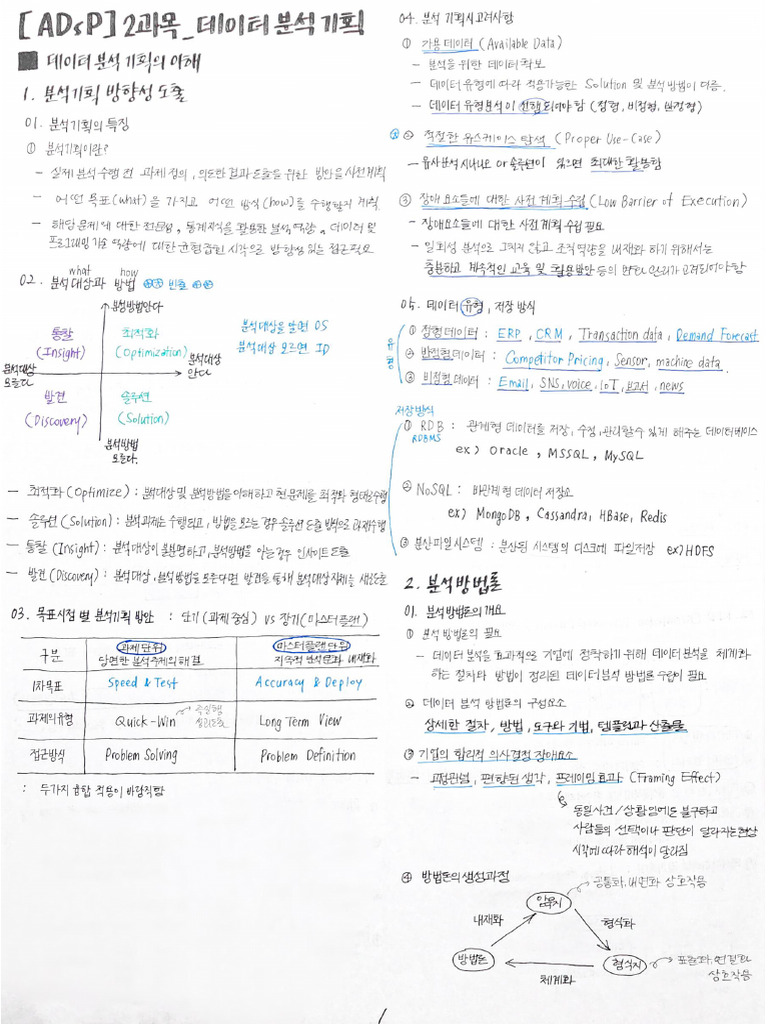 [ADsP] 2과목_데이터 분석 기획
■ 데이터 분석 기획의 이해
1. 분석기획 방향성 도출
01. 분석기획의 특징
① 분석기획이란?
- 실제 분석 수행 전 과제 정의, 의도한 결과 도출을 위한 방안을 사전 계획
- 어떤 목표(what)을 가지고 어떤 방식(how)를 수행할지 계획
- 해당 문제에 대한 전문성, 통계지식을 활용한 분석역량, 데이터 및
프로그래밍 기술 역량에 대한 균형잡힌 시각으로 방향성 있는 접근 필요
what how
02. 분석대상과 방법 빈출
분석방법안다
통찰
(Insight)
최적화
(Optimization)
분석대상을 알면 OS
분석대상 모르면 ID
분석대상
모른다
분석대상
안다
발견
(Discovery)
솔루션
(Solution)
분석방법
모른다.
- 최적화(Optimize) : 분석대상 및 분석방법을 이해하고 현 문제를 최적화 형태로 수행
- 솔루션(Solution) : 분석과제는 수행되고, 방법을 모르는 경우 솔루션 도출 방식으로 과제수행
- 통찰(Insight) : 분석대상이 불분명하고, 분석방법을 아는 경우 인사이트 도출
- 발견(Discovery) : 분석대상, 분석방법을 모른다면 발견을 통해 분석대상 자체를 새로 도출
03. 목표시점 별 분석기획 방안 : 단기(과제 중심) VS 장기(마스터플랜)
구분 과제단위 마스터플랜단위
당면한 분석주제의 해결 지속적 분석문화 내재화
1차목표 Speed & Test Accuracy & Deploy
과제의유형 Quick-Win Long Term View
접근방식 Problem Solving Problem Definition
: 두가지 융합 적용이 바람직함
04. 분석 기획시 고려사항
① 가용 데이터 (Available Data)
- 분석을 위한 데이터 확보
- 데이터 유형에 따라 적용가능한 Solution 및 분석방법이 다름.
- 데이터 유형분석이 선행되어야 함 (정형, 비정형, 반정형)
② 적절한 유스케이스 탐색 (Proper Use-Case)
- 유사분석 시나리오 or 솔루션이 있으면 최대한 활용함
③ 장애요소들에 대한 사전 계획 수립 (Low Barrier of Execution)
- 장애요소들에 대한 사전계획 수립 필요
- 일회성 분석으로 그치지 않고 조직역량을 내재화 하기 위해서는
충분하고 계속적인 교육 및 활용방안 등의 변화 관리가 고려되어야 함
05. 데이터 유형, 저장 방식
유형
① 정형데이터 : ERP, CRM, Transaction data, Demand Forecast
② 반정형데이터 : Competitor Pricing, Sensor, machine data
③ 비정형데이터 : Email, SNS, voice, IoT, 보고서, news
저장방식
① RDB : 관계형 데이터를 저장, 수정, 관리할 수 있게 해주는 데이터베이스
RDBMS
ex) Oracle, MSSQL, MySQL
② NoSQL : 비관계형 데이터 저장소
ex) MongoDB, Cassandra, HBase, Redis
③ 분산파일시스템 : 분산된 시스템의 디스크에 파일저장 ex) HDFS
2. 분석방법론
01. 분석방법론의 개요
① 분석 방법론의 필요
- 데이터 분석을 효과적으로 기업에 정착하기 위해 데이터분석을 체계화
하는 절차와 방법이 정리된 데이터분석 방법론 수립이 필요
② 데이터 분석 방법론의 구성요소
상세한 절차, 방법, 도구와 기법, 템플릿과 산출물
③ 기업의 합리적 의사결정 장애요소
- 고정관념, 편향된 생각, 프레이밍 효과 (Framing Effect)
동일사건/상황임에도 불구하고
사람들의 선택이나 판단이 달라지는 현상
시각에 따라 해석이 달라짐
④ 방법론의 생성과정
공통화, 내면화 상호작용
암묵지
내재화 형식화
방법론 형식지
표출화, 연결화
상호작용
체계화
1